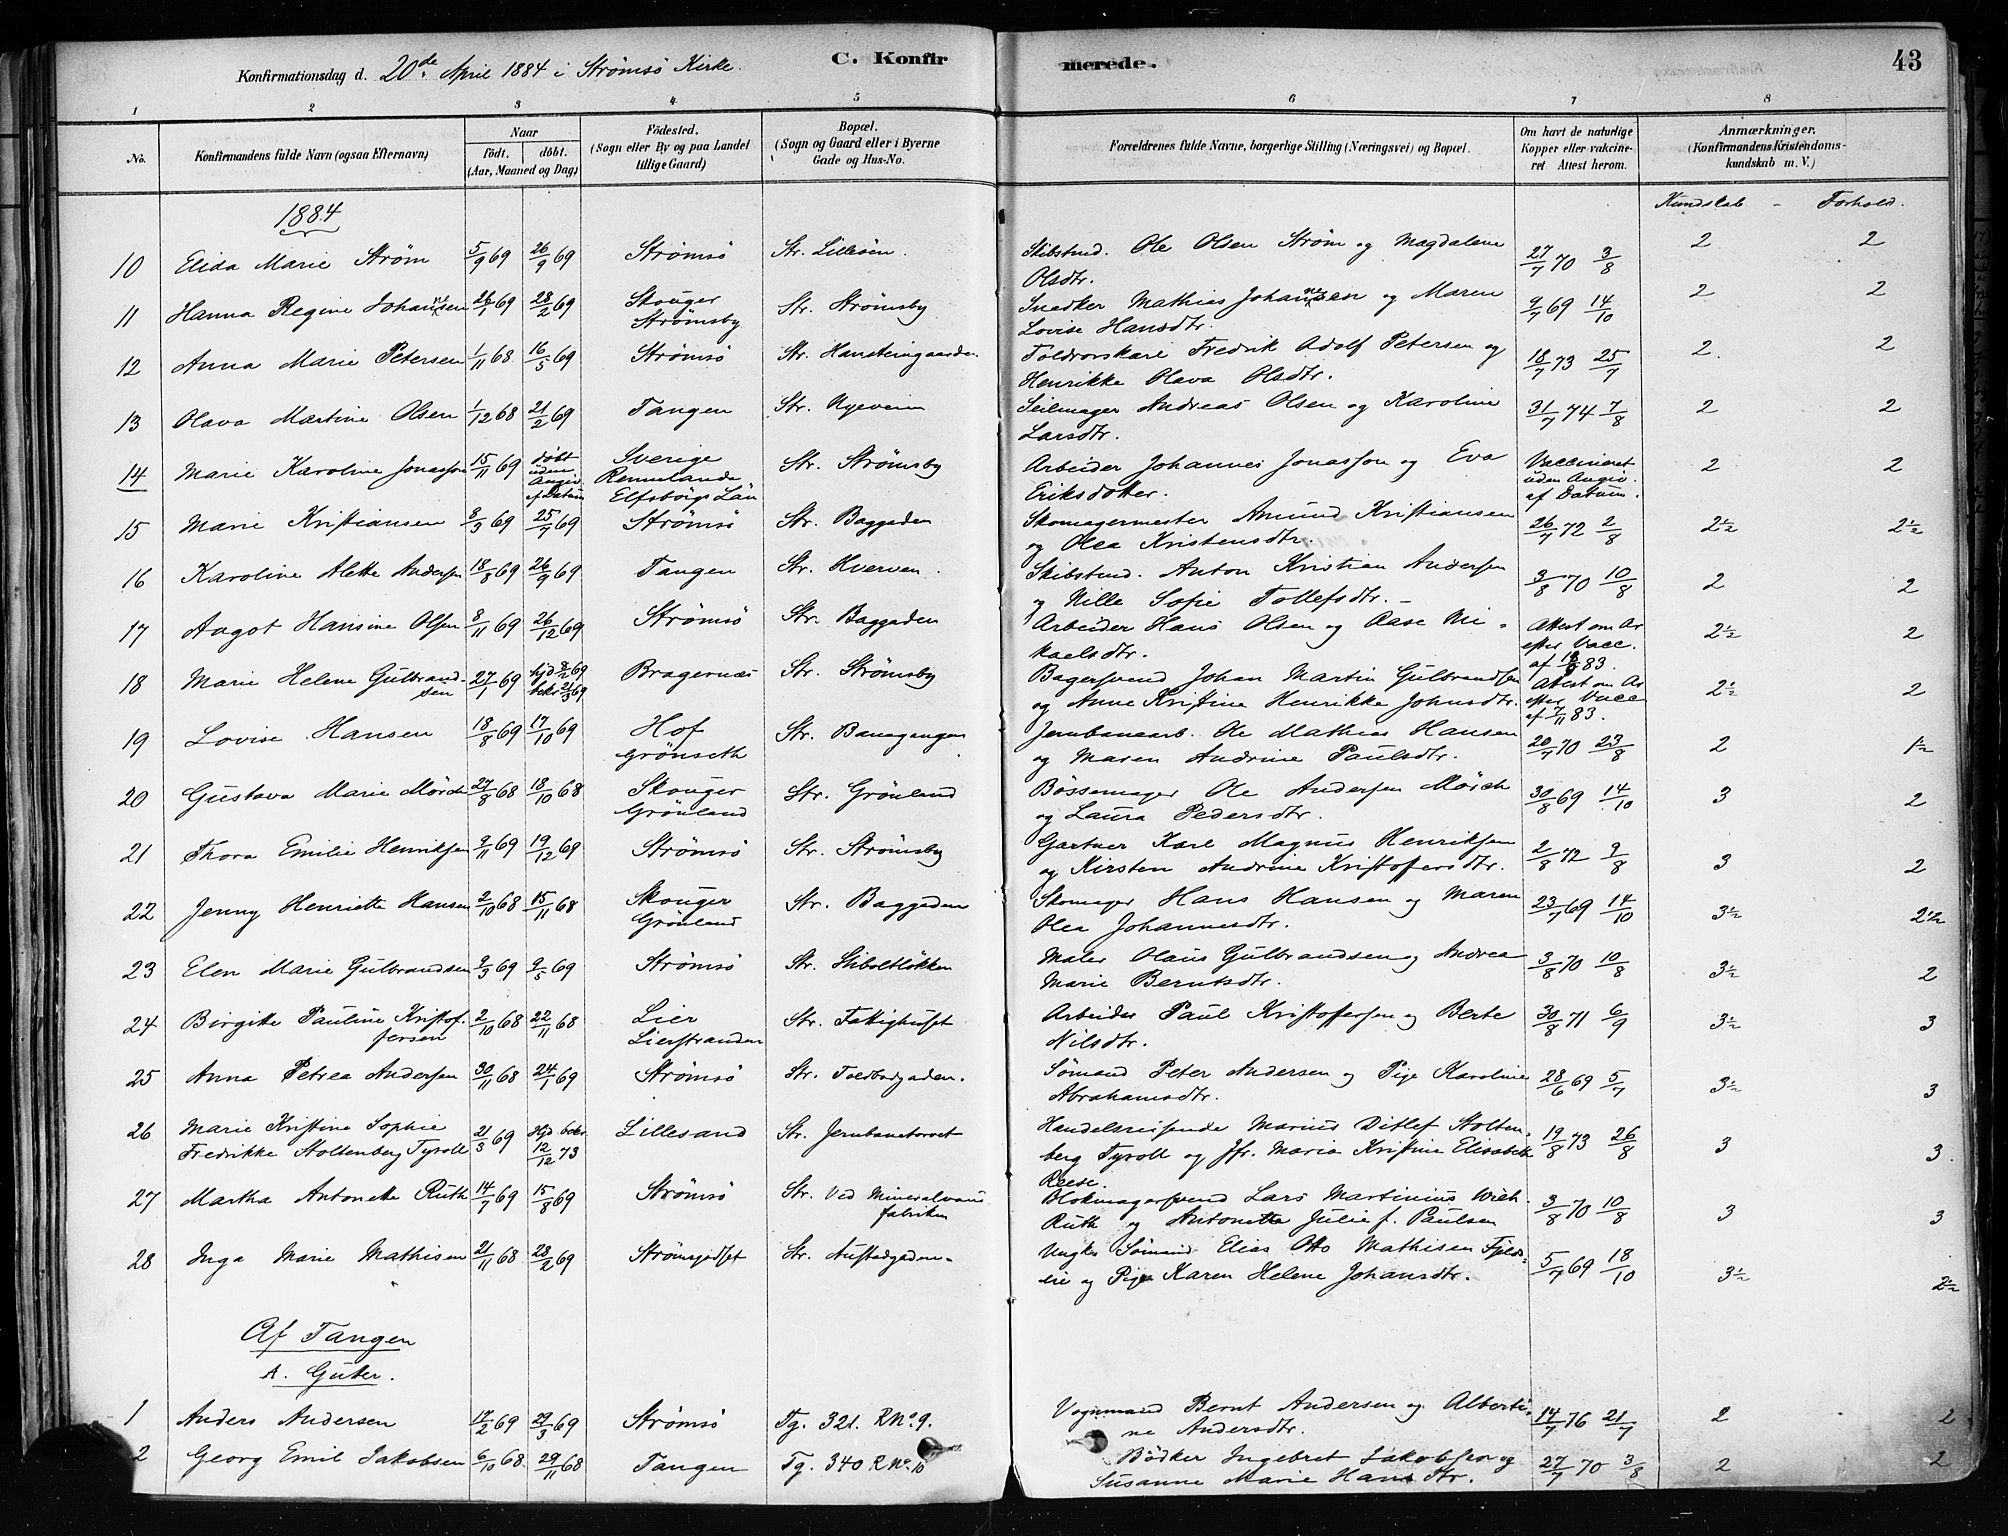 Konfirmationsdag d. 20de April 1884 i Strømsø Kirke.
C. Konfirmerede.
43
1 2 3 4 5 6 7 8
No.
Konfirmandens fulde Navn (ogsaa Efternavn)
Naar
födt. döbt.
(Aar, Maaned og Dag)
Födested.
(Sogn eller By og paa Landet
tillige Gaard)
Bopæl.
(Sogn og Gaard eller i Byerne
Gade og Hus-No.
Forældrenes fulde Navne, borgerlige Stilling (Næringsvei) og Bopæl.
Om havt de naturlige
Kopper eller vakcine-
ret Attest herom.
Anmærkninger.
(Konfirmandens Kristendoms-
kundskab m. V.)
1884
Kundskab - Forhold.
10 Elida Marie Strøm 5/9 69 26/9 69 Strömsö Str. Lilleöen. Skibstmd. Ole Olsen Ström og Magdalene 27/7 70 3/8 2 2
Olsdtr.
11 Hanna Regine Johannesen 26/1 69 28/2 69 Skouger Str. Strömsby Snedker Mathias Johannesen og Maren 9/7 69 14/10 2 2
Strömsby Lovise Hansdtr.
12 Anna Marie Petersen 1/11 68 16/5 69 Strömsö Str. Hansteengaarden. Toldrorskarl Fredrik Adolf Petersen og 18/7 73 25/7 2. 2
Henrikke Olava Olsdtr.
13 Olava Martine Olsen 1/12 68 21/2 69 Tangen Str. Nyeveien Seilmager Andreas Olsen og Karoline 31/7 74 7/8 2 2
Larsdtr.
14 Marie Karoline Jonasson 15/11 69 döbt uden Angiv. af Datum Sverige Str. Strömsby Arbeider Johannes Jonasson og Eva Vaccineret uden Angiv. af Datum. 2 2
Rennelanda Elfsborgs Län Eriksdotter.
15 Marie Kristiansen 8/3 69 25/7 69 Strömsö Str. Baggaden Skomagermester Amund Kristiansen 26/7 72 2/8 2½ 2½
og Olea Kristensdtr.
16 Karoline Alette Andersen 18/8 69 26/9 69 Tangen Str. Hverven. Skibstmd. Anton Kristian Andersen 3/8 70 10/8 2 2
og Nille Sofie Tollefsdtr.
17 Aagot Hansine Olsen 8/11 69 26/12 69 Strömsö Str. Baggaden Arbeider Hans Olsen og Aase Mi- Attest om Ar 2½ 2
kaelsdtr. efter Vacc. af 18/8 83.
18 Marie Helene Gulbrandsen 27/1 69 hjd 8/2 69 bekr 21/3 69 Bragernæs Str. Strömsby Bagersvend Johan Martin Gulbrandsen Attest om Ar 2½ 2
og Anne Kristine Henrikke Johnsdtr. efter Vacc af 7/11 83.
19 Lovise Hansen 18/8 69 17/10 69 Hof Str. Banegangen Jernbanearb. Ole Mathias Hansen 20/7 70 23/8 2 1½
Grönseth og Maren Andrine Paulsdtr.
20 Gustava Marie Mörch 27/8 68 18/10 68 Skouger Str. Grönland Bössemager Ole Andersen Mörch 30/8 69 14/10 3 2
Grönland og Laura Pedersdtr.
21 Thora Emilie Henriksen 9/11 69 19/12 69 Strömsö Str. Strömsby Gartner Karl Magnus Henriksen 2/8 72 9/8 3 2
og Kirsten Andrine Kristoffersdtr.
22 Jenny Henriette Hansen 2/10 68 15/11 68 Skouger Str. Baggaden Skomager Hans Hansen og Maren 23/7 69 14/10 3½ 2½
Grönland Olea Johannesdtr.
23 Elen Marie Gulbrandsen 9/3 69 9/5 69 Strömsö Str. Stiboltlökken Maler Olaus Gulbrandsen og Andrea 3/8 70 10/8 3½ 2
Marie Berntsdtr.
24 Birgitte Pauline Kristoffersen 2/10 68 22/11 68 Lier Str. Fattighuset Arbeider Paul Kristoffersen og Berte 30/8 71 6/9 3½ 3
Lierstranden Nilsdtr.
25 Anna Petrea Andersen 30/11 68 24/1 69 Strömsö Str. Toldbodgaden. Sömand Peter Andersen og Pige Karoline 28/6 69 5/7 3½ 3
Abrahamsdtr.
26 Marie Kristine Sophie 21/3 69 Hjd. bekr. 12/12 73 Lillesand Str. Jernbanetorvet Handelsreisende Marius Ditlef Stolten- 19/8 73 26/8 3 3.
Fredrikke Stoltenberg Tyroll berg Tyroll og Jfr. Maria Kristine Elisabeth
Reese.
27 Martha Antonette Ruth 14/7 69 15/8 69 Strömsö Str. Ved Mineralvand fabriken Blokmagersvend Lars Martinius Wilh. 3/8 70 10/8 3 3
Ruth og Antonette Julie f. Paulsen
28 Inga Marie Mathisen 21/11 68 28/2 69 Strömsgodset Str. Austadgaden. Ungk. Sömand Elias Otto Mathisen Fjeld- 5/7 69 18/10 3½ 2½
eie og Pige Karen Helene Johansdtr.
Af Tangen
A. Gutter.
1 Anders Andersen 17/2 69 29/3 69 Strömsö Tg. 321. R No. 9. Vognmand Bernt Andersen og Alberti- 14/7 76 21/7 2 2
ne Andersdtr.
2 Georg Emil Jakobsen 6/10 68. 29/11 68 Tangen Tg. 340 R No. 10 Bödker Ingebret Jakobsen og 27/7 70 3/8 2 2
Susanne Marie Hansdtr.